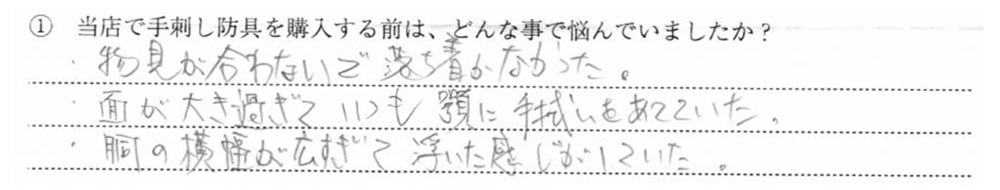 ① 当店で手刺し防具を購入する前は、どんな事で悩んでいましたか？
・物見が合わないで落ち着かなかった。
・面が大き過ぎていつも顎に手拭いをあてていた。
・胴の横幅が広すぎて浮いた感じがしていた。